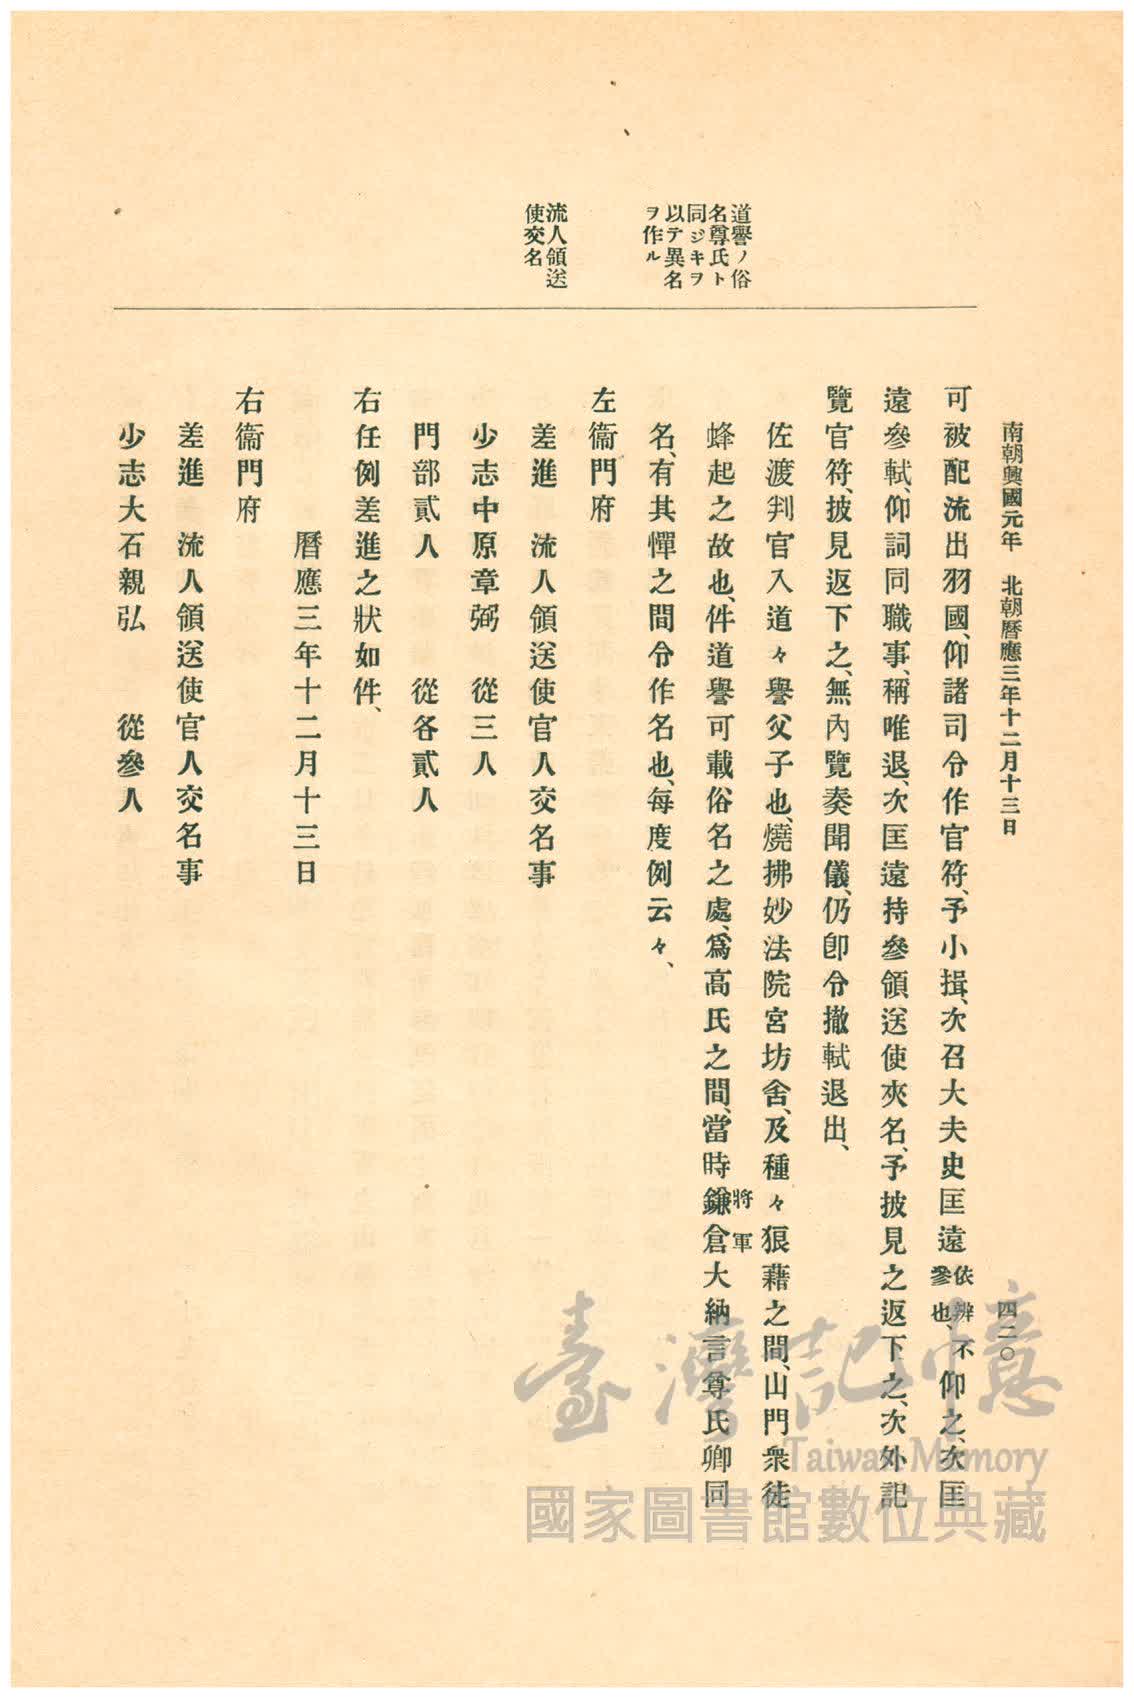 南朝興國元年　北朝曆應三年十二月十三日
四二〇
道譽ノ俗
名尊氏ト
同ジキヲ
以テ異名
ヲ作ル
流人領送
使交名
可被配流出羽國、仰諸司令作官符、予小揖、次召大夫史匡遠依辨不參也、仰之、次匡
遠參軾、仰詞同職事、稱唯退、次匡遠持參領送使夾名、予披見之返下之、次外記
覽官符、披見返下之、無內覽奏聞儀、仍卽令撤軾退出、
佐渡判官入道々譽父子也、燒拂妙法院宮坊舍、及種々狼藉之間、山門衆徒
蜂起之故也、件道譽可載俗名之處、爲高氏之間、當時鎌倉大納言尊氏卿同
將軍
名、有其憚之間令作名也、每度例云々、
左衞門府
差進　流人領送使官人交名事
少志中原章弼　從三人
門部貳人　從各貳人
右任例差進之狀如件、
曆應三年十二月十三日
右衞門府
差進　流人領送使官人交名事
少志大石親弘　從參人
臺灣記憶
Taiwan Memory
國家圖書館數位典藏